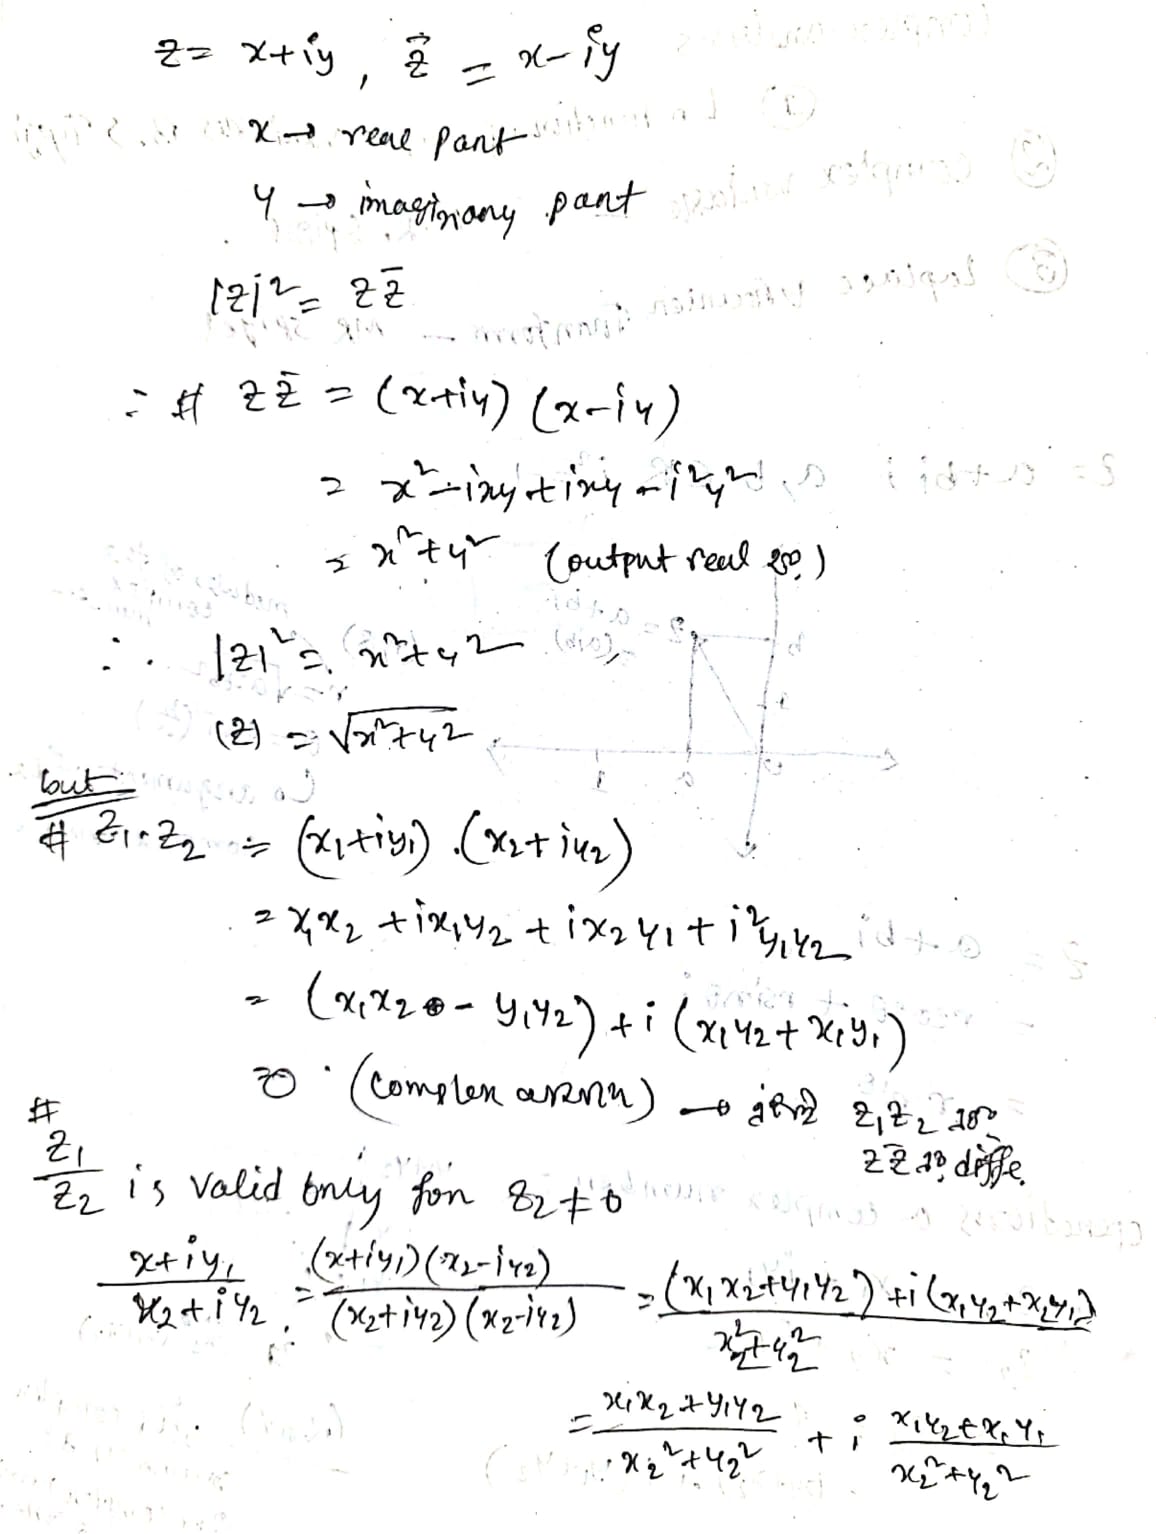 z = x+iy, z̄ = x-iy
x → real part
y → imaginary part
|z|² = z z̄
∴ # z z̄ = (x+iy) (x-iy)
= x² - ixy + ixy - i²y²
= x² + y² (output real হয়)
∴ |z|² = x² + y²
|z| = √x²+y²
but
# z₁·z₂ = (x₁+iy₁) · (x₂+iy₂)
= x₁x₂ + ix₁y₂ + ix₂y₁ + i²y₁y₂
= (x₁x₂ - y₁y₂) + i (x₁y₂ + x₁y₁)
(complex) → z₁z₂
z z̄ diffe.
#
z₁/z₂ is valid only for z₂ ≠ 0
x+iy₁ / x₂+iy₂ = (x+iy₁)(x₂-iy₂) / (x₂+iy₂)(x₂-iy₂) = (x₁x₂+y₁y₂) + i(x₁y₂+x₂y₁) / x₂²+y₂²
= x₁x₂+y₁y₂ / x₂²+y₂² + i x₁y₂+x₁y₁ / x₂²+y₂²